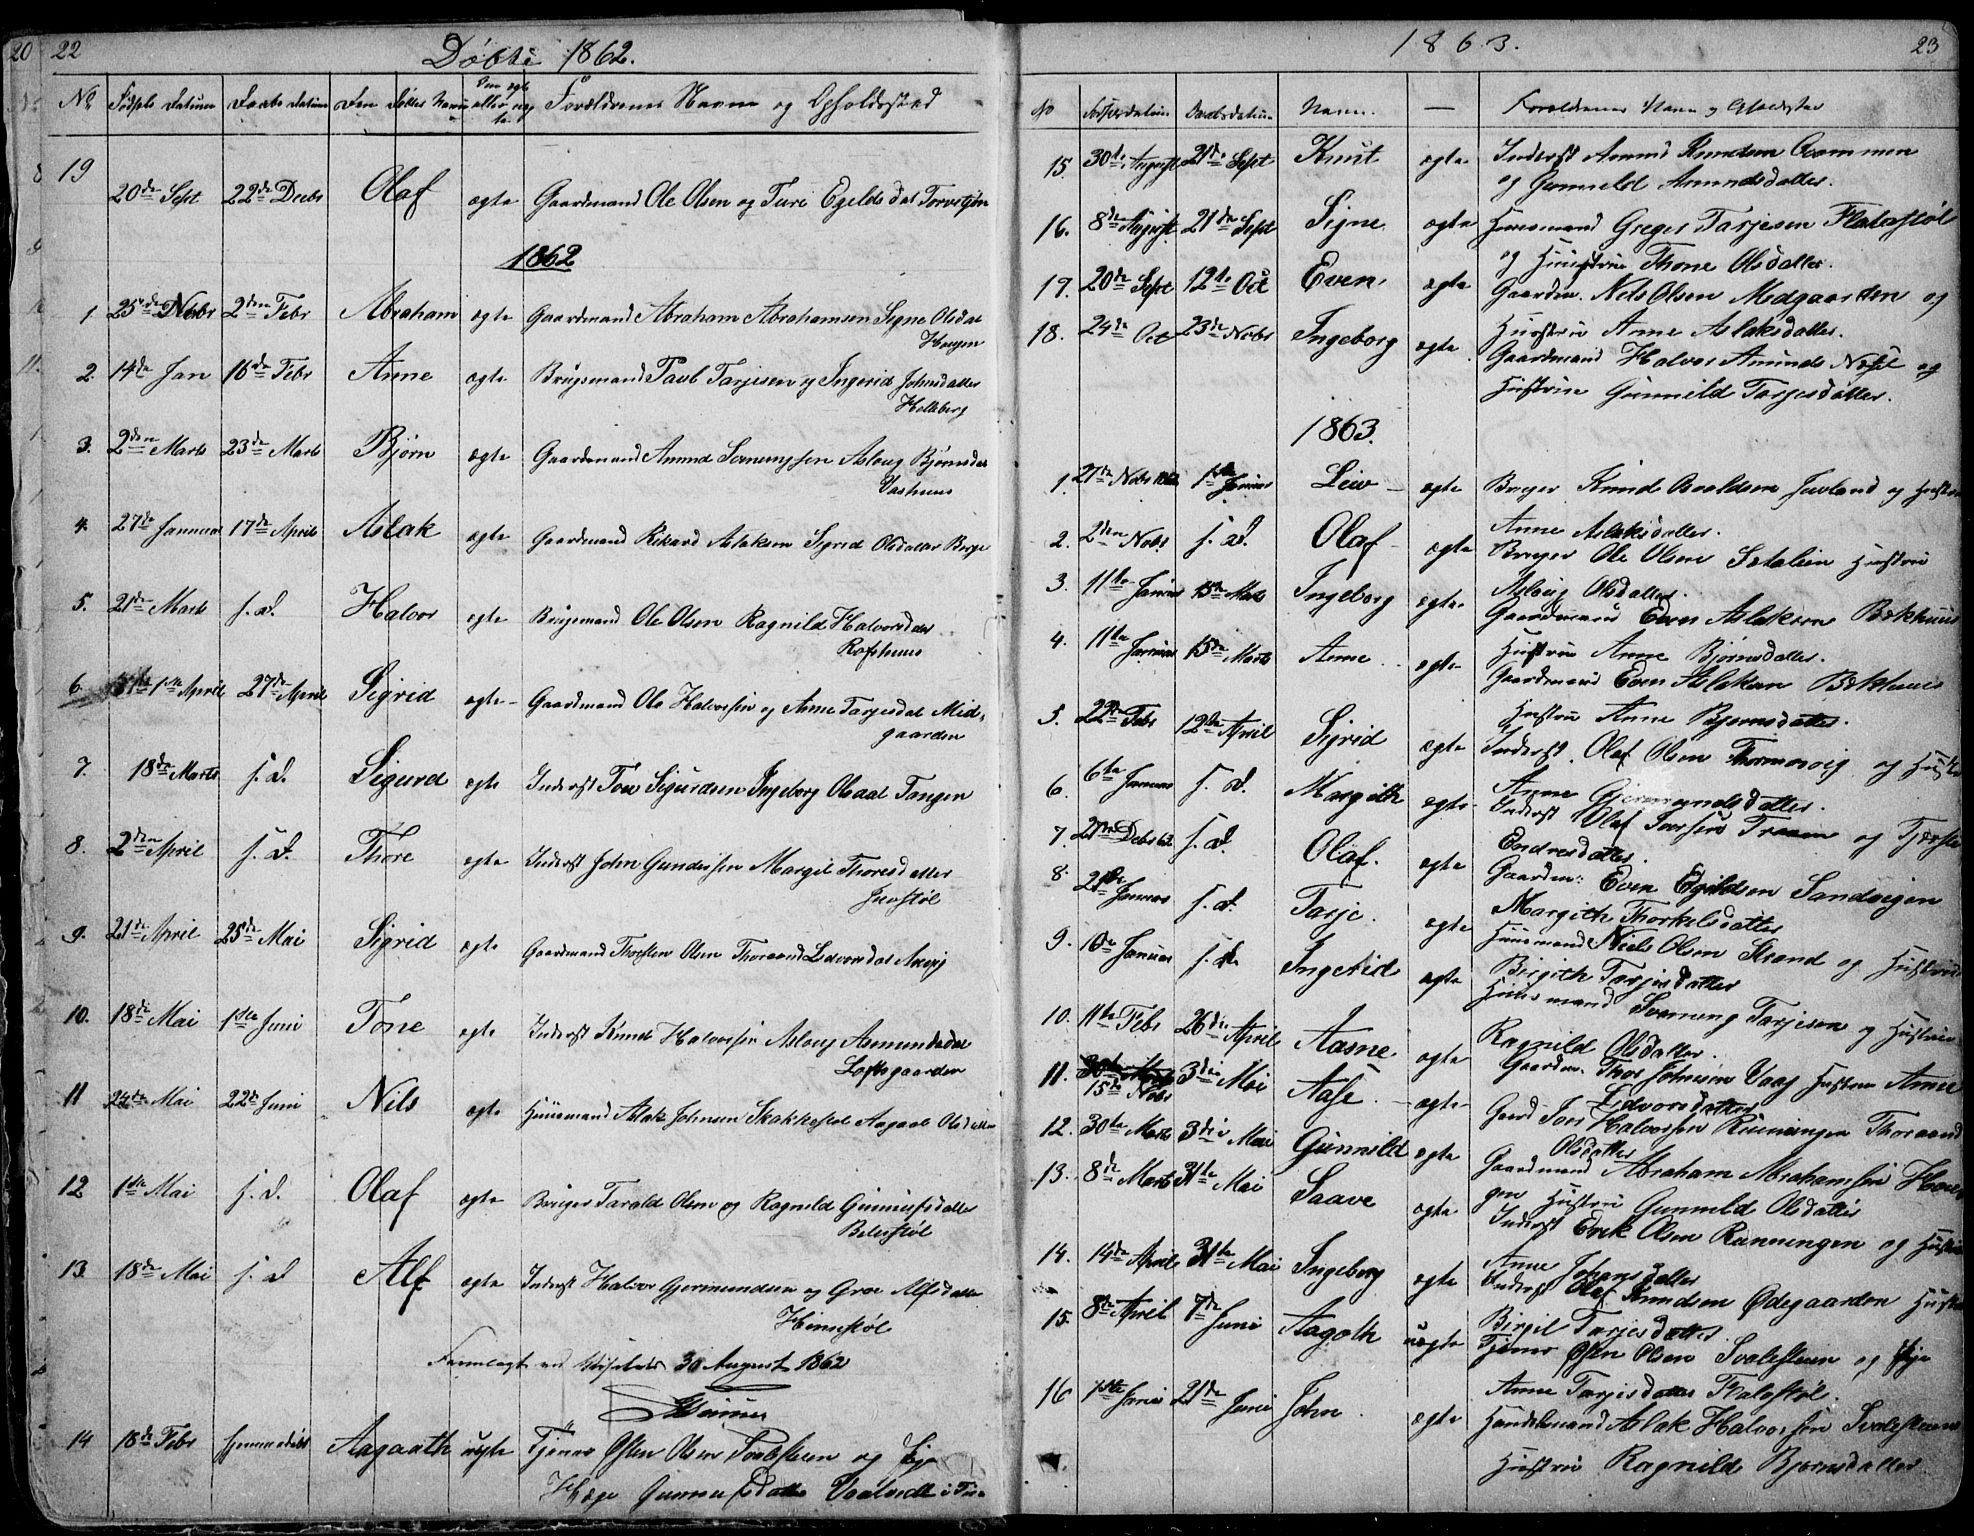 20 22 Døbte 1862.
No Fødsels Datum Daabs Datum Den Døbtes Navn Om ægte eller uægte Forældrenes Navn og Opholdssted
19 20de Sept 22de Decbr Olaf ægte Gaardmand Ole Olsen og Turi Egeldsdat Torvetjøn
1862
1 25de Novbr 2den Febr Abraham ægte Gaardmand Abraham Abrahamsen Signe Olsdat
Haugen
2. 14de Jan 16de Febr Anne ægte Brugsmand Paul Tarjesen og Ingerid Johnsdatter
Helleberg
3. 2den Marts 23de Marts Bjørn ægte Gaardmand Amund Sveinungsen Aslaug Bjørnsdat
Vashuus
4. 27de Januar 17de April Aslak ægte Gaardmand Rikard Aslaksen Sigrid Olsdatter Berge
5. 21de Marts s. d. Halvor ægte Brugsmand Ole Olsen Ragnild Halvorsdat
Rofshuus
6. 1ste April 27de April Sigrid ægte Gaardmand Ole Halvorsen og Anne Tarjesdat Mid-
gaarden
7. 18de Marts s. d. Sigurd ægte Inderst Tov Sigurdsen Ingeborg Olsdat Tangen
8. 2den April s. d. Thore ægte Inderst John Gundersen Margit Thoresdatter
9. 21de April 25de Mai Sigrid ægte Gaardmand Thorsten Olsen Thoraand Ledvorsdat
10. 18de Mai 1ste Juni Tone ægte Inderst Knud Halvorsen Aslaug Asmundsdat
Loftsgaarden
11 24de Mai 22de Juni Nils ægte Huusmand Aslak Johnsen Skakkestøl Aagaat Olsdatter
12 1ste Mai s. d. Olaf ægte Bruger Tarald Olsen og Ragnild Gunnufsdatter
13. 18de Mai s. d. Alf ægte Inderst Halvor Gjermundsen og Groe Alfsdatter
Himestøl
Fremlagt ved 30 August 1862
14 18de Febr hjemmedøbt Aagaath uægte Tjener Østen Olsen Svalesteen og Pige
Hæge

1863. 23
No Fødselsdatum Daabsdatum Navn. — Forældrenes Navn og Opholdssted
15. 30te August 21de Sept Knut ægte Inderst Amund Knudsen
og Gunnild Amundsdatter.
16. 8de August 21de Sept Signe ægte Huusmand Greger Tarjesen Flatestøl
og Hustrue Thone Olsdatter.
17. 20de Sept 12te Oct Even ægte Gaardm. Nels Olsen Midgaarden og
Hustrue Anne Aslaksdatter.
18. 24de Oct 23de Novbr Ingeborg ægte Gaardmand Halvor Amunds og
Hustrue Gunnild Tarjesdatter.
1863.
1. 27de Novbr 1862 1ste Januar Leiv ægte Bruger Knud og Hustrue
Anne Aslaksdatter.
2. 2den Novbr s. d. Olaf ægte Bruger Ole Olsen Hustrue
Aslaug Olsdatter.
3. 11te Januar 15de Marts Ingeborg ægte Gaardmand Even Aslaksen Bekhuus
Hustrue Anne Bjørnsdatter.
4. 11te Januar 15de Marts Anne ægte Gaardmand Even Aslaksen Bekhuus
Hustrue Anne Bjørnsdatter.
5. 22de Febr 12te April Sigrid ægte Inderst Olaf Olsen og Hustrue
Anne Gjermundsdatter.
6. 6te Januar s. d. Margith ægte Inderst Olaf Iversen Traaen og
Endresdatter.
7. 27de Decbr 62 s. d. Olaf. ægte Gaardm: Even Egildsen Sandvigen
Margith Thorkelsdatter
8. 21de Januar s. d. Tarje. ægte Huusmand Niels Olsen Strand og Hustrue
Birgith Tarjesdatter
9. 10de Januar s. d. Ingerid ægte Huusmand Sveinung Tarjesen og Hustrue
Ragnild Olsdatter.
10. 11te Febr 26de April Aasne ægte Gaardm. Thor Johnsen Vaag Hustrue Anne
Ledvorsdatter
11. 15de Novbr 3die Mai Aase ægte Gaard- Halvorsen Rünningen Thoraand
Olsdatter
12. 30te Marts 3die Mai Gunnild ægte Gaardmand Abraham Abrahamsen Hau-
gen Hustrue Gunnild Olsdatter
13. 8de Marts 31te Mai Saave ægte Inderst Erik Olsen Runningen og Hustrue
Anne Johansdatter
14. 14de April 31te Mai Ingeborg ægte Inderst Olaf Knudsen Ødegaarden Hustrue
Birgit Tarjesdatter
15. 8de April 7de Juni Aagoth uægte Tjener Østen Olsen Svalesteen og Pige
Anne Tarjesdatter Flatestøl.
16 1ste Juni 21de Juni John. ægte Handelsmand Aslak Halvorsen Svalesteen
Hustrue Ragnild Bjørnsdatter